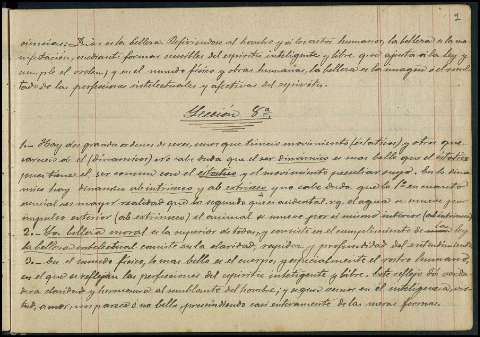 1
ciencias. Qué es la belleza. Refiriéndose al hombre y a los actos humanos, la belleza es la ma
nifestación, mediante formas sensibles del espíritu inteligente y libre que ajusta a la ley y
cumple el orden, y en el mundo físico y obras humanas, la belleza es la imagen o el resul
tado de las perfecciones intelectuales y afectivas del espíritu.
Lección 8ª
1.- Hay dos grandes ordenes de seres, unos que tienen movimiento (estaticos) y otros que
carecen de él (dinamicos) no cabe duda que el ser dinamico es mas bello que el estatico
pues tiene el ser comun con el estatico y el movimiento peculiar suyo. En lo dina
mico hay dinamico ab intrinseco y ab extrinseco y no cabe duda que lo 1º en cuanto
esencial es mayor realidad que lo segundo que es accidental. vg. el agua se mueve por
impulso exterior (ab extrinseco) el animal se mueve por si mismo interior (ab intrinseco)
2.- La belleza moral es la superior de todas, y consiste en el cumplimiento de la ley
la belleza intelectual consiste en la claridad, rapidez y profundidad del entendimiento
3.- En el mundo físico, lo mas bello es el cuerpo, y especialmente el rostro humano,
en el que se reflejan las perfecciones del espíritu inteligente y libre. Este reflejo da verda
dera claridad y hermosura al semblante del hombre; y a quien vemos en el inteligencia, vir
tud, amor, nos parece o no bello, prescindiendo casi enteramente de las meras formas.